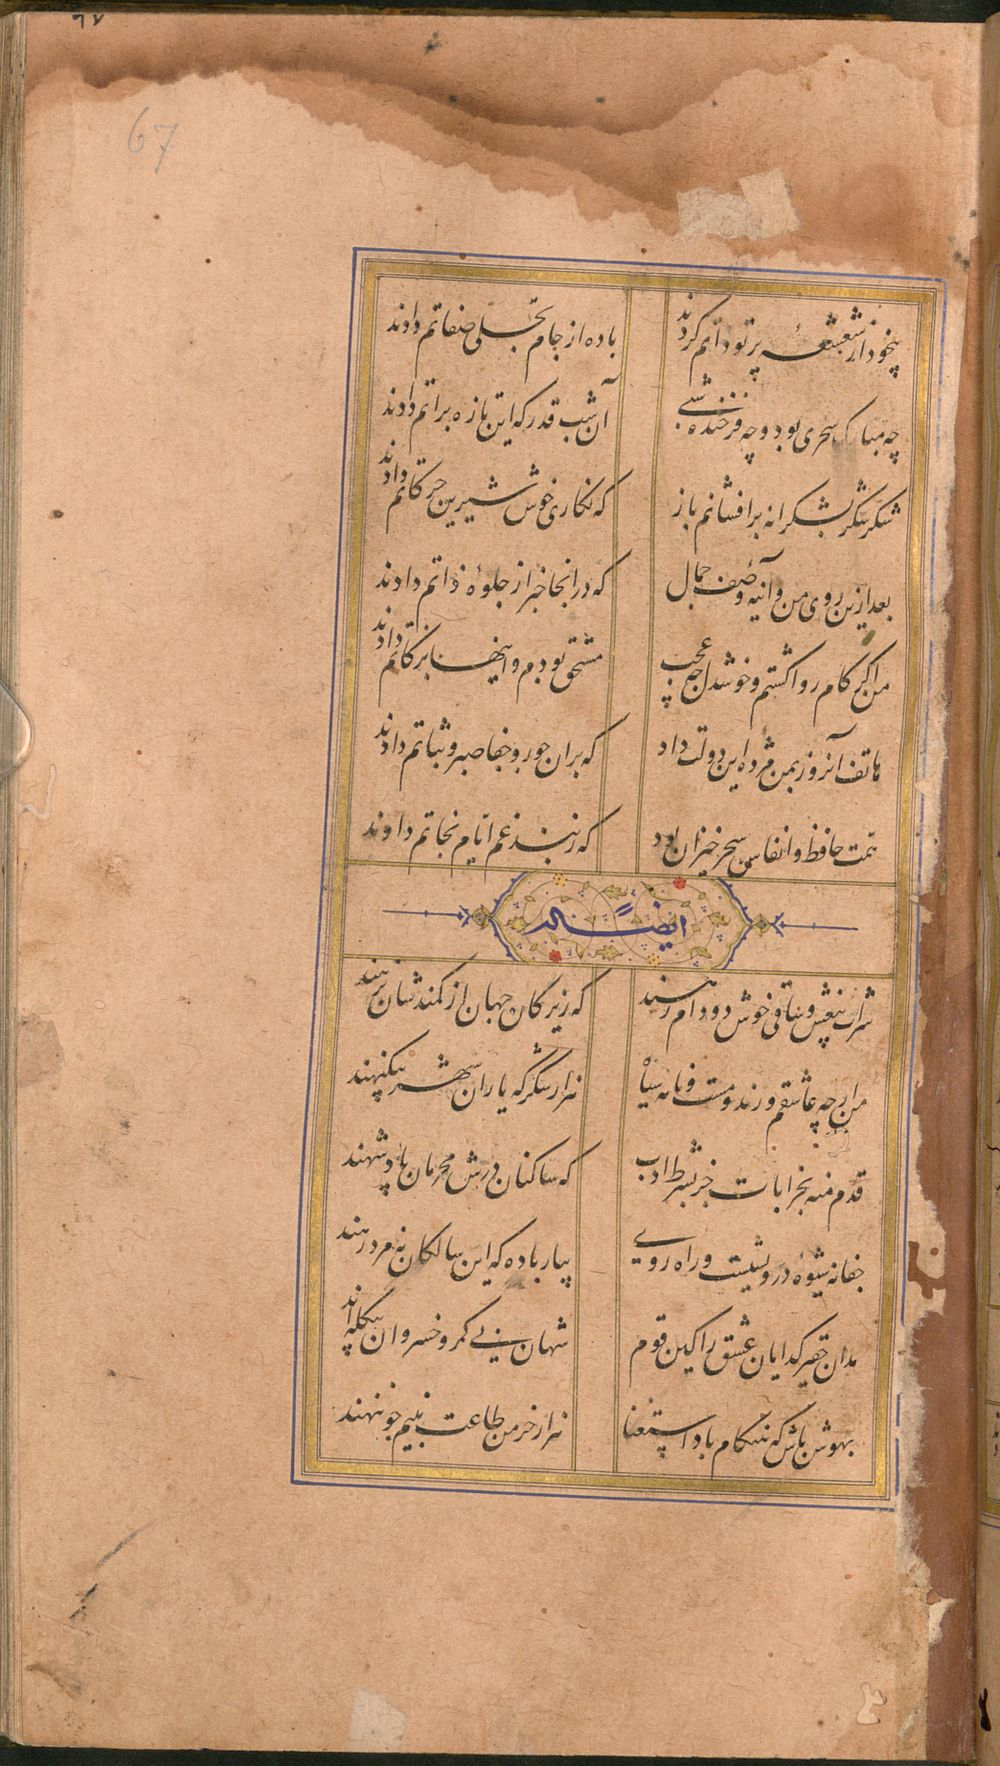 ٦٧
67
بیخود از شعشعهٔ پرتو ذاتم کردند
باده از جام تجلی صفاتم دادند
چه مبارک سحری بود و چه فرخنده شبی
آن شب قدر که این تازه براتم دادند
شکر شکر بشکرانه برافشانم باز
که نگاری خوش شیرین حرکاتم دادند
بعد ازین روی من و آینه وصف جمال
که در انجا خبر از جلوهٔ ذاتم دادند
من اگر کام روا گشتم و خوشدل چه عجب
مستحق بودم و اینها بزکاتم دادند
هاتف آنروز بمن مژده این دولت داد
که بران جور و جفا صبر و ثباتم دادند
همت حافظ و انفاس سحر خیزان بود
که ز بند غم ایام نجاتم دادند
ایضاً له
شراب بیغش و ساقی خوش دو دام رهند
که زیرکان جهان از کمندشان نرهند
من ارچه عاشقم و رند و مست و نامه سیاه
هزار شکر که یاران شهر بیگنهند
قدم منه بخرابات جز بشرط ادب
که ساکنان درش محرمان پادشهند
جفا نه شیوهٔ درویشیست و راه روی
بیار باده که این سالکان نه مرد رهند
مدان حقیر گدایان عشق را کین قوم
شهان بی کمر و خسروان بیکله اند
بهوش باش که هنگام باد استغنا
هزار خرمن طاعت به نیم جو ننهند